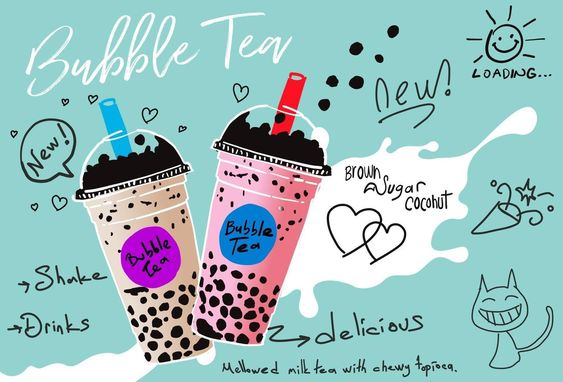 Bubble Tea
new!
LOADING...
New!
Brown
Sugar
coconut
Bubble
Tea
Bubble
Tea
Shake
Drinks
delicious
Mellowed milk tea with chewy tapioca.